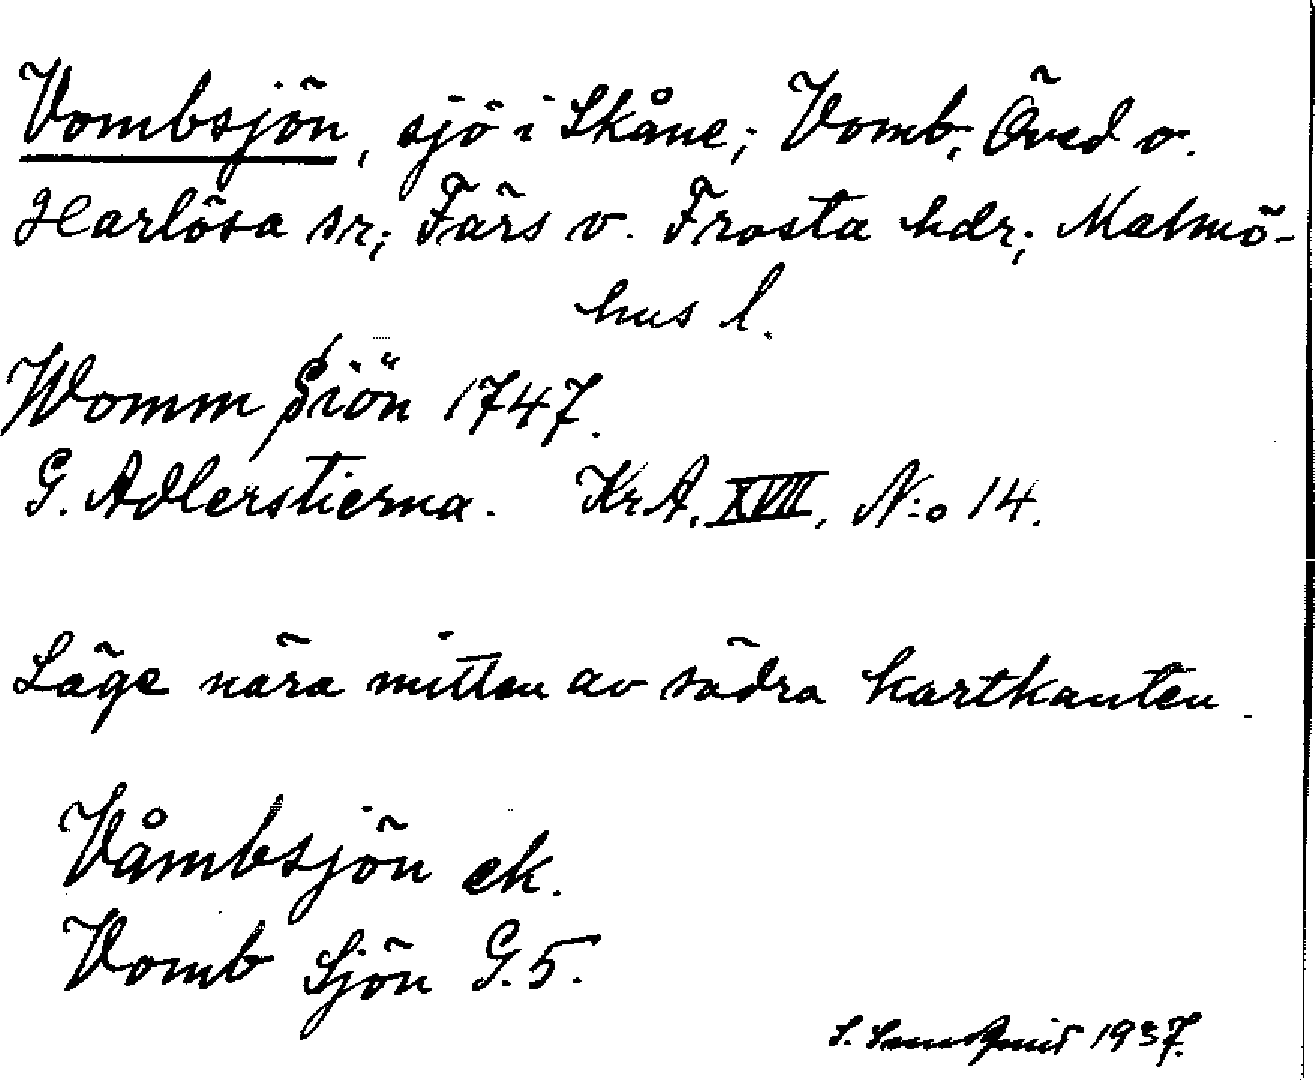 Vombsjön, sjö i Skåne; Vomb, Öved o.
Harlösa sr; Färs o. Frosta hdr; Malmö-
hus l.
Womm Siön 1747.
G. Adlerstierna. KrA. XVII, N:o 14.
Läge nära mitten av södra kartkanten.
Våmbsjön ek.
Vomb Sjön G.5.
S. 1937.